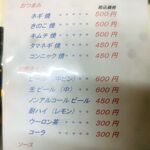 おつまみ 税込価格
ネギ焼 ・・・・・ 500円
きのこ焼 ・・・・ 500円
キムチ焼 ・・・・ 500円
タマネギ焼 ・・・ 450円
コンニャク焼 ・・・ 450円
ビール（中ビン） 600円
生ビール（中）・・ 600円
ノンアルコールビール 450円
酎ハイ（レモン）・・ 500円
ウーロン茶 ・・・ 300円
コーラ ・・・・・ 300円
ソース